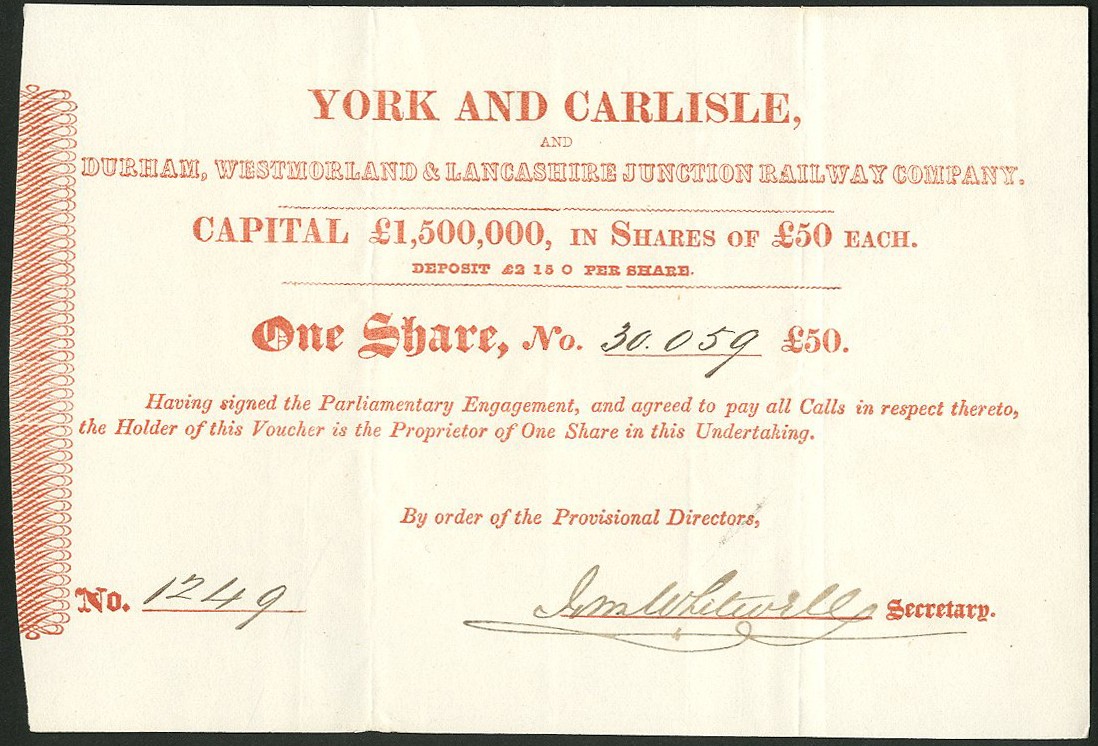 YORK AND CARLISLE,
AND
DURHAM, WESTMORLAND & LANCASHIRE JUNCTION RAILWAY COMPANY.
CAPITAL £1,500,000, IN SHARES OF £50 EACH.
DEPOSIT £2 15 0 PER SHARE.
One Share, No. 30.059 £50.
Having signed the Parliamentary Engagement, and agreed to pay all Calls in respect thereto,
the Holder of this Voucher is the Proprietor of One Share in this Undertaking.
By order of the Provisional Directors,
No. 1249
Whitwell Secretary.